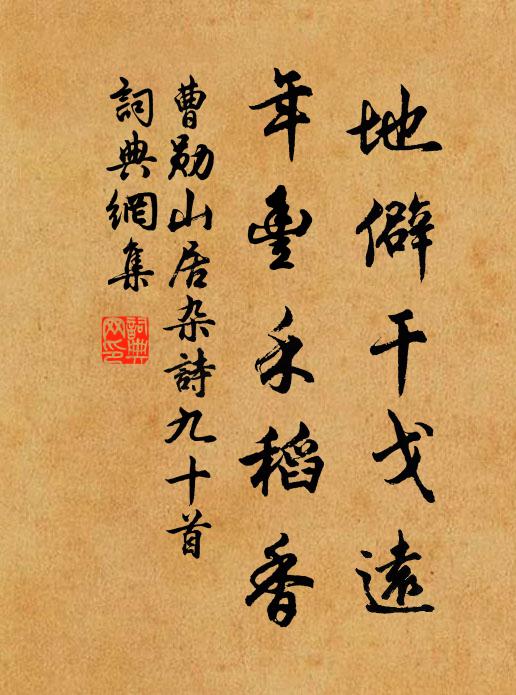 地僻干戈遠
年豐禾稻香
曹勛山居杂詩九十首
詞典網集
詞典
网印